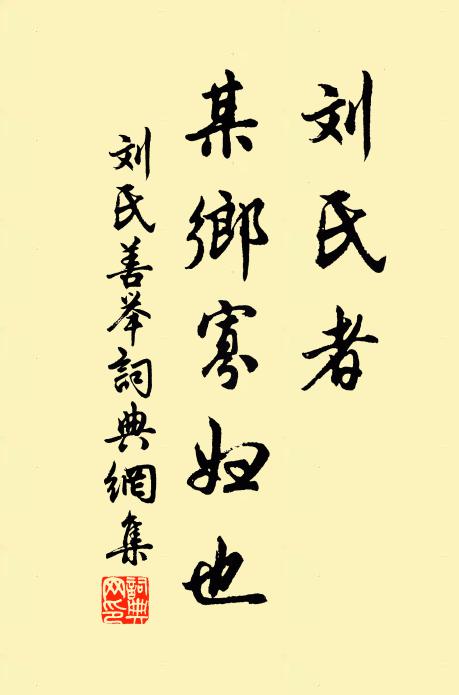 刘氏者
某鄉寡妇也
刘氏善举詞典網集
詞典网印